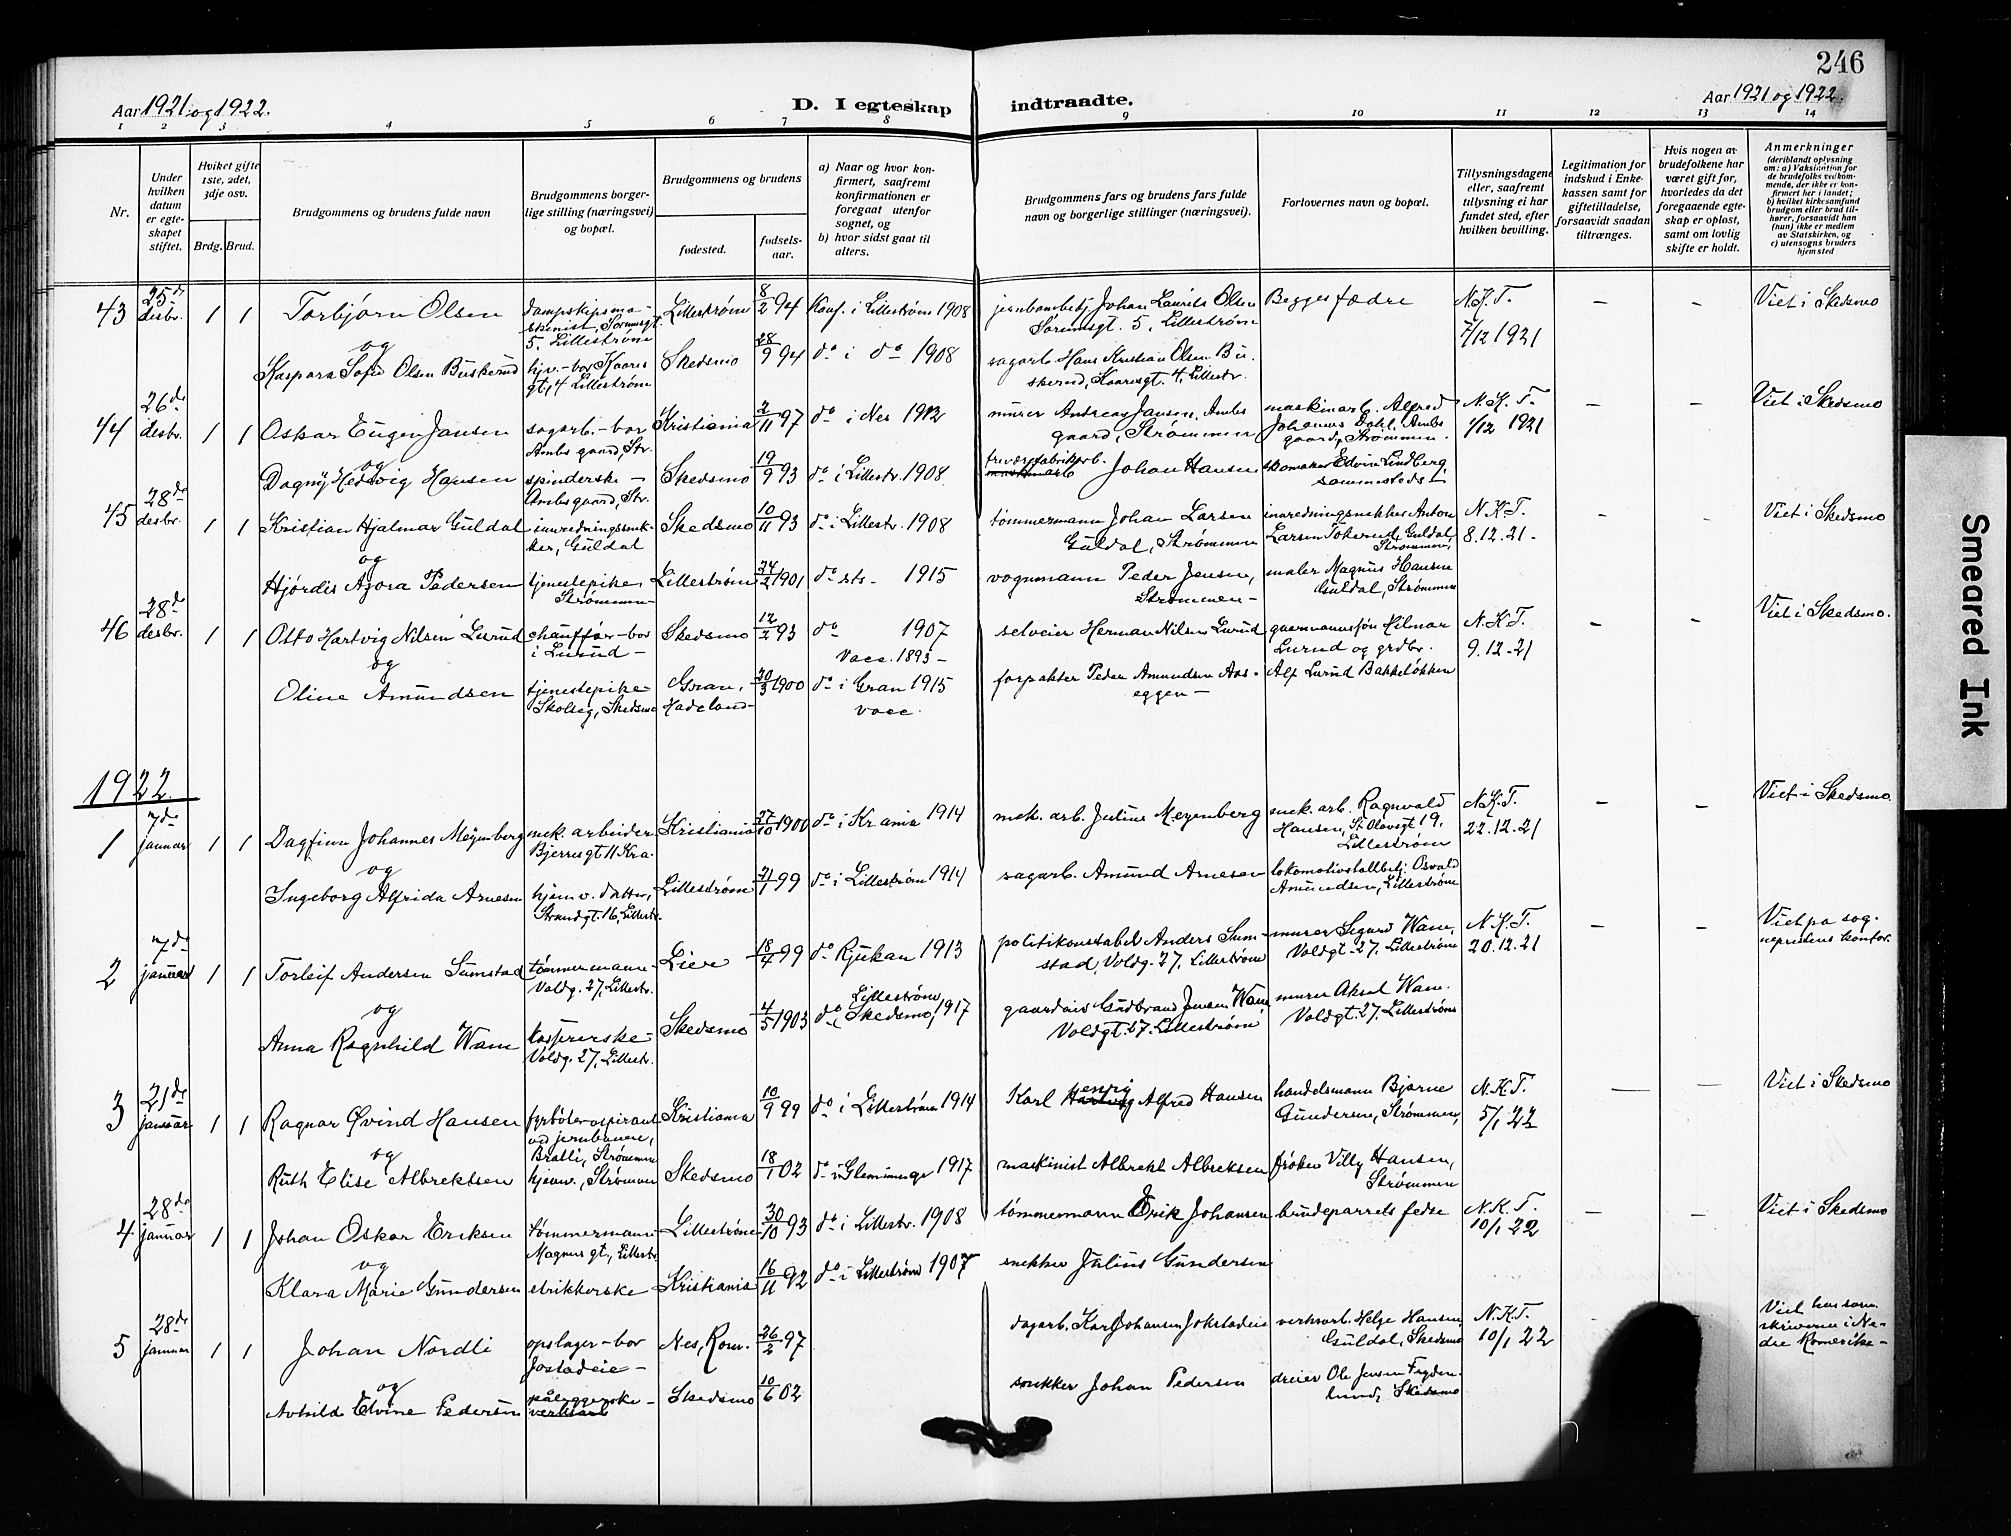 246
Aar 1921 og 1922.
D. I egteskap indtraadte.
Aar 1921 og 1922.
1 2 3 4 5 6 7 8 9 10 11 12 13 14
Nr.
Under hvilken datum er egteskapet stiftet.
Hviket gifte 1ste, 2det, 3dje osv.
Brdg. Brud.
Brudgommens og brudens fulde navn
Brudgommens borgerlige stilling (næringsvei) og bopæl.
Brudgommens og brudens
fødested.
fødselsaar.
a) Naar og hvor konfirmert, saafremt konfirmationen er foregaat utenfor sognet, og
b) hvor sidst gaat til alters.
Brudgommens fars og brudens fars fulde navn og borgerlige stillinger (næringsvei).
Forlovernes navn og bopæl.
Tillysningsdagene eller, saafremt tillysning ei har fundet sted, efter hvilken bevilling.
Legitimation for indskud i Enkekassen samt for giftetilladelse, forsaavidt saadan tiltrænges.
Hvis nogen av brudefolkene har været gift før, hvorledes da det foregaaende egteskap er opløst, samt om lovlig skifte er holdt.
Anmerkninger
(deriblandt oplysning om: a) Vaksination for de brudefolks vedkommende, der ikke er konfirmert her i landet;
b) hvilket kirkesamfund brudgom eller brud tilhører, forsaavidt han (hun) ikke er medlem av Statskirken, og
c) utensogns bruders hjemsted
43 25de desbr. 1 1 Torbjørn Olsen dampskipsmaskinist, Sørumsgt. 5, Lillestrøm Lillestrøm 8/2 94 Konf. i Lillestrøm 1908 jernbanebetj Johan Laurits Olsen Sørumsgt. 5, Lillestrøm Begges fædre N.K.T. 7/12 1921 – – Viet i Skedsmo
og
Kaspara Sofie Olsen Buskerud hjv. - bor Kaares gt. 4 Lillestrøm Skedsmo 28/9 94 do i do 1908 sagarb. Hans Kristian Olsen Buskerud, Kaaresgt. 4, Lillestr.
44 26de desbr. 1 1 Oskar Eugen Jansen sagarb. - bor Ambs gaard, Str. Kristiania 2/11 97 do i Nes 1912 murer Andreas Jansen, Ambs gaard, Strømmen maskinarb. Alfred Johannes Dahl, Ambs gaard, Strømmen. N.K.T. 1/12 1921 – – Viet i Skedsmo
og
Dagny Hedvig Hansen spinderske - Ambsgaard, Str. Skedsmo 19/9 93 do i Lillestr. 1908 trevarefabrikarb. Johan Hansen skomaker Edvin Lindberg, sammesteds
45 28de desbr. 1 1 Kristian Hjalmar Guldal innredningssnekker, Guldal Skedsmo 10/11 93 do i Lillestr. 1908 tømmermann Johan Larsen Guldal, Strømmen innredningsnekker Anton Larsen Tokerud, Guldal, Strømmen, N.K.T. 8.12.21. – – Viet i Skedsmo
og
Hjørdis Agora Pedersen tjenestepike, Strømmen Lillestrøm 24/2 1901 do sts. 1915 vognmann Peder Jensen, Strømmen – maler Magnus Hansen Guldal, Strømmen
46 28de desbr. 1 1 Otto Hartvig Nilsen Lurud chauffør - bor i Lurud – Skedsmo 12/2 93 do 1907 Vacc. 1893 – selveier Herman Nilsen Lurud gaardmannssøn Hilmar Lurud og grdbr. N.K.T. 9.12.21 – – Viet i Skedsmo.
og
Oline Amundsen tjenestepike Skolseg, Skedsmo Gran, Hadeland 20/3 1900 do i Gran 1915 vacc. forpakter Peder Amundsen Aaseggen – Alf Lurud Bakkeløkken
1922.
1 7de januar 1 1 Dagfinn Johannes Meyenberg mek. arbeider Bjerresgt 11 Kra. Kristiania 27/10 1900 do i Krania 1914 mek. arb. Julius Meyenberg mek. arb. Ragnvald Hansen, St. Olavsgt 19, Lillestrøm N.K.T. 22.12.21 – – Viet i Skedsmo
og
Ingeborg Alfrida Arnesen hjem v. datter, Strandgt. 16, Lillestr. Lillestrøm 21/1 99 do i Lillestrøm 1914 sagarb. Amund Arnesen lokomotivstallbetj. Osvald Amundsen, Lillestrøm
2 7de januar 1 1 Torleif Andersen Sumstad tømmermann Voldg. 27, Lillestr. Lier 18/4 99 do Rjukan 1913 politikonstabel Anders Sumstad, Voldg. 27, Lillestrøm murer Sigurd Wam, Voldgt. 27, Lillestrøm N.K.T. 20.12.21 – – Viet pa sogneprestens kontor.
og
Anna Ragnhild Wam kassererske Voldg. 27, Lillestr. Skedsmo 4/5 1903 do i Lillestrøm, Skedsmo, 1917 gaardeier Gudbrand Jensen Wam Voldgt. 27. Lillestrøm murer Aksel Wam. Voldgt. 27, Lillestrøm
3 21de januar 1 1 Ragnar Øvind Hansen fyrbøteraspirant ved jernbanen, Bratli, Strømmen Kristiania 10/9 99 do i Lillestrøm 1914 Karl Henrig Alfred Hansen handelsmann Bjarne Gundersen, Strømmen, N.K.T. 5/1 22 – – Viet i Skedsmo
og
Ruth Elise Albrektsen hjemv., Strømmen Skedsmo 18/1 02 do i Glemminge 1917 maskinist Albrekt Albreksen frøken Villy Hansen, Strømmen
4 28de januar 1 1 Johan Oskar Eriksen tømmermann Magnus gt., Lillestr. Lillestrøm 30/10 93 do i Lillestr. 1908 tømmermann Erik Johansen brudeparrets fedre N.K.T. 10/1 22 – – Viet i Skedsmo
og
Klara Marie Gundersen strikkerske Kristiania 16/11 92 do i Lillestrøm 1907 snekker Julius Gundersen
5 28de januar 1 1 Johan Nordli opslager - bor Jostadeie – Nes, Rom. 26/2 97 dagarb. Karl Johansen Jokstadeie verksarb. Helge Hansen, Guldal, Skedsmo N.K.T. 10/1 22 Viet hos sorenskriveren i Nedre Romerike –
og
Avhild Elvine Pedersen påleggerske – Skedsmo 10/6 02 snekker Johan Pedersen dreier Ole Jensen Frydenlund, Skedsmo
Smeared Ink